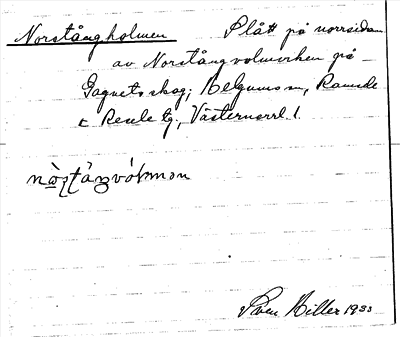 Norstångholmen Plått på norrsidan
av Norstångvolmarken på
Gagnets skog; Helgums sn, Ramsele
& Resele tg., Västernorrl. l.
Sven Hiller 1933